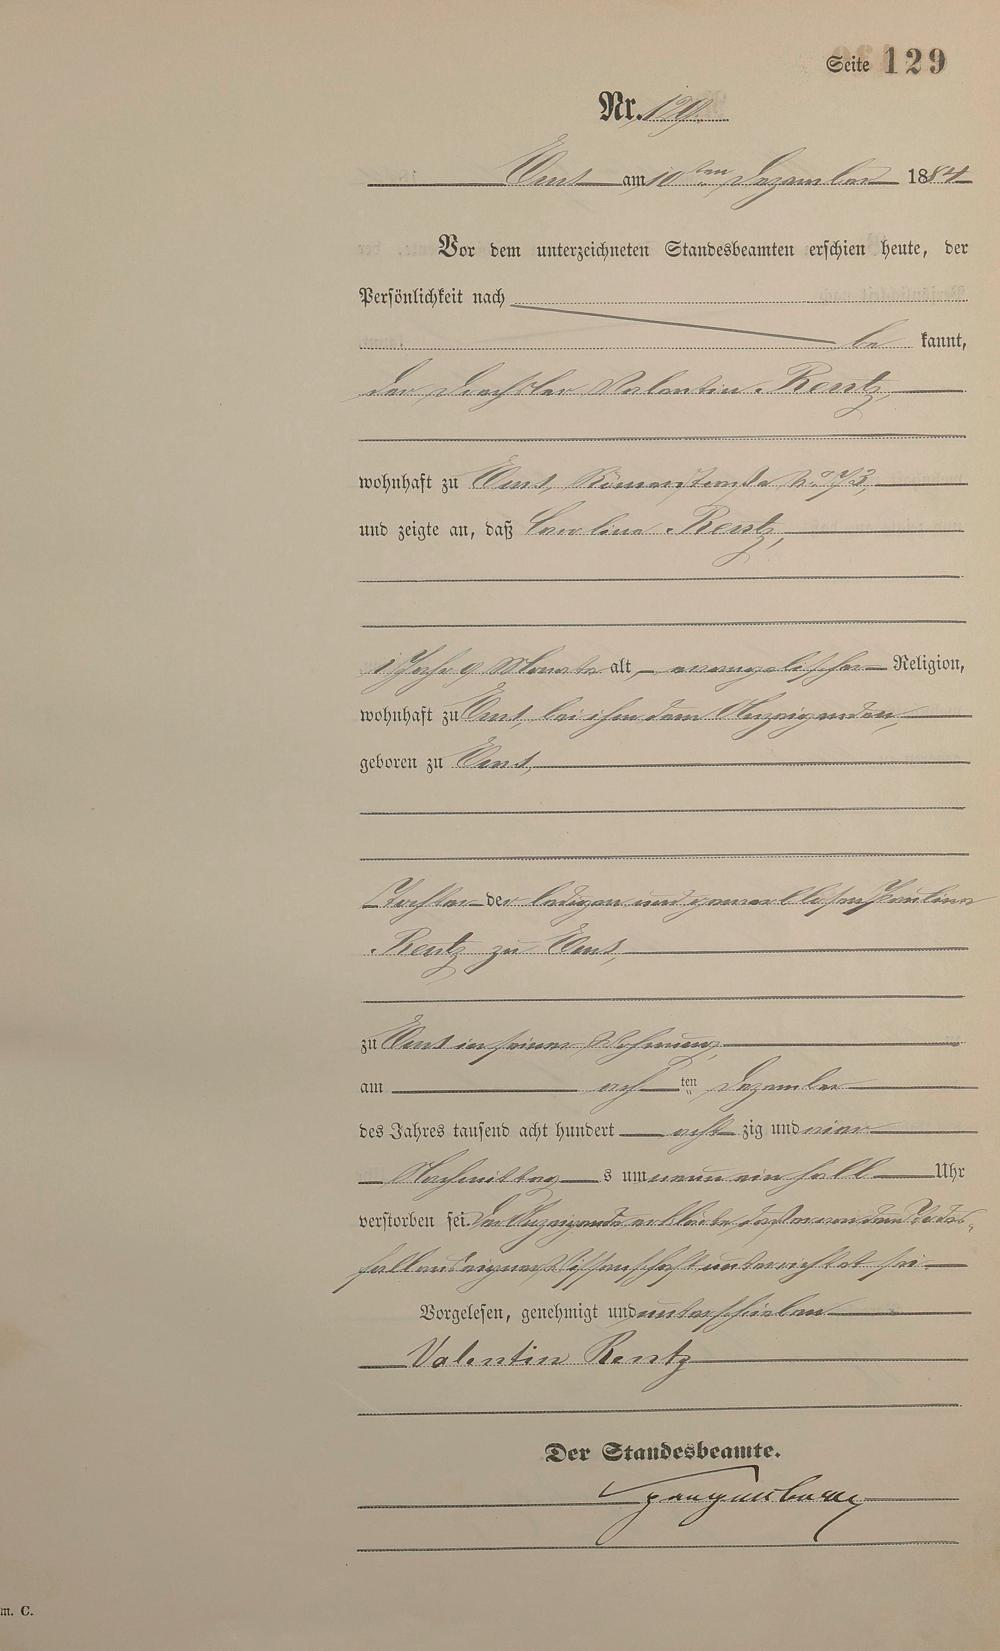 Seite 129
Nr. 129.
Ems am 10ten Dezember 1884
Vor dem unterzeichneten Standesbeamten erschien heute, der
Persönlichkeit nach
be kannt,
der Drechsler Valentin Rentz,
wohnhaft zu Ems, Römerstraße No 73,
und zeigte an, daß Caroline Rentz,
1 Jahr 9 Monate alt, evangelischer Religion,
wohnhaft zu Ems, bei ihm dem Anzeigenden,
geboren zu Ems,
Tochter der ledigen und gewerblosen Pauline
Rentz zu Ems,
zu Ems in seiner Wohnung,
am acht ten Dezember
des Jahres tausend acht hundert acht zig und vier
Nachmittag s um neun ein halb Uhr
verstorben sei. Der Anzeigende erklärte, daß er von dem Todes-
falle aus eigner Wissenschaft unterrichtet sei.
Vorgelesen, genehmigt und unterschrieben
Valentin Rentz
Der Standesbeamte.
m. C.